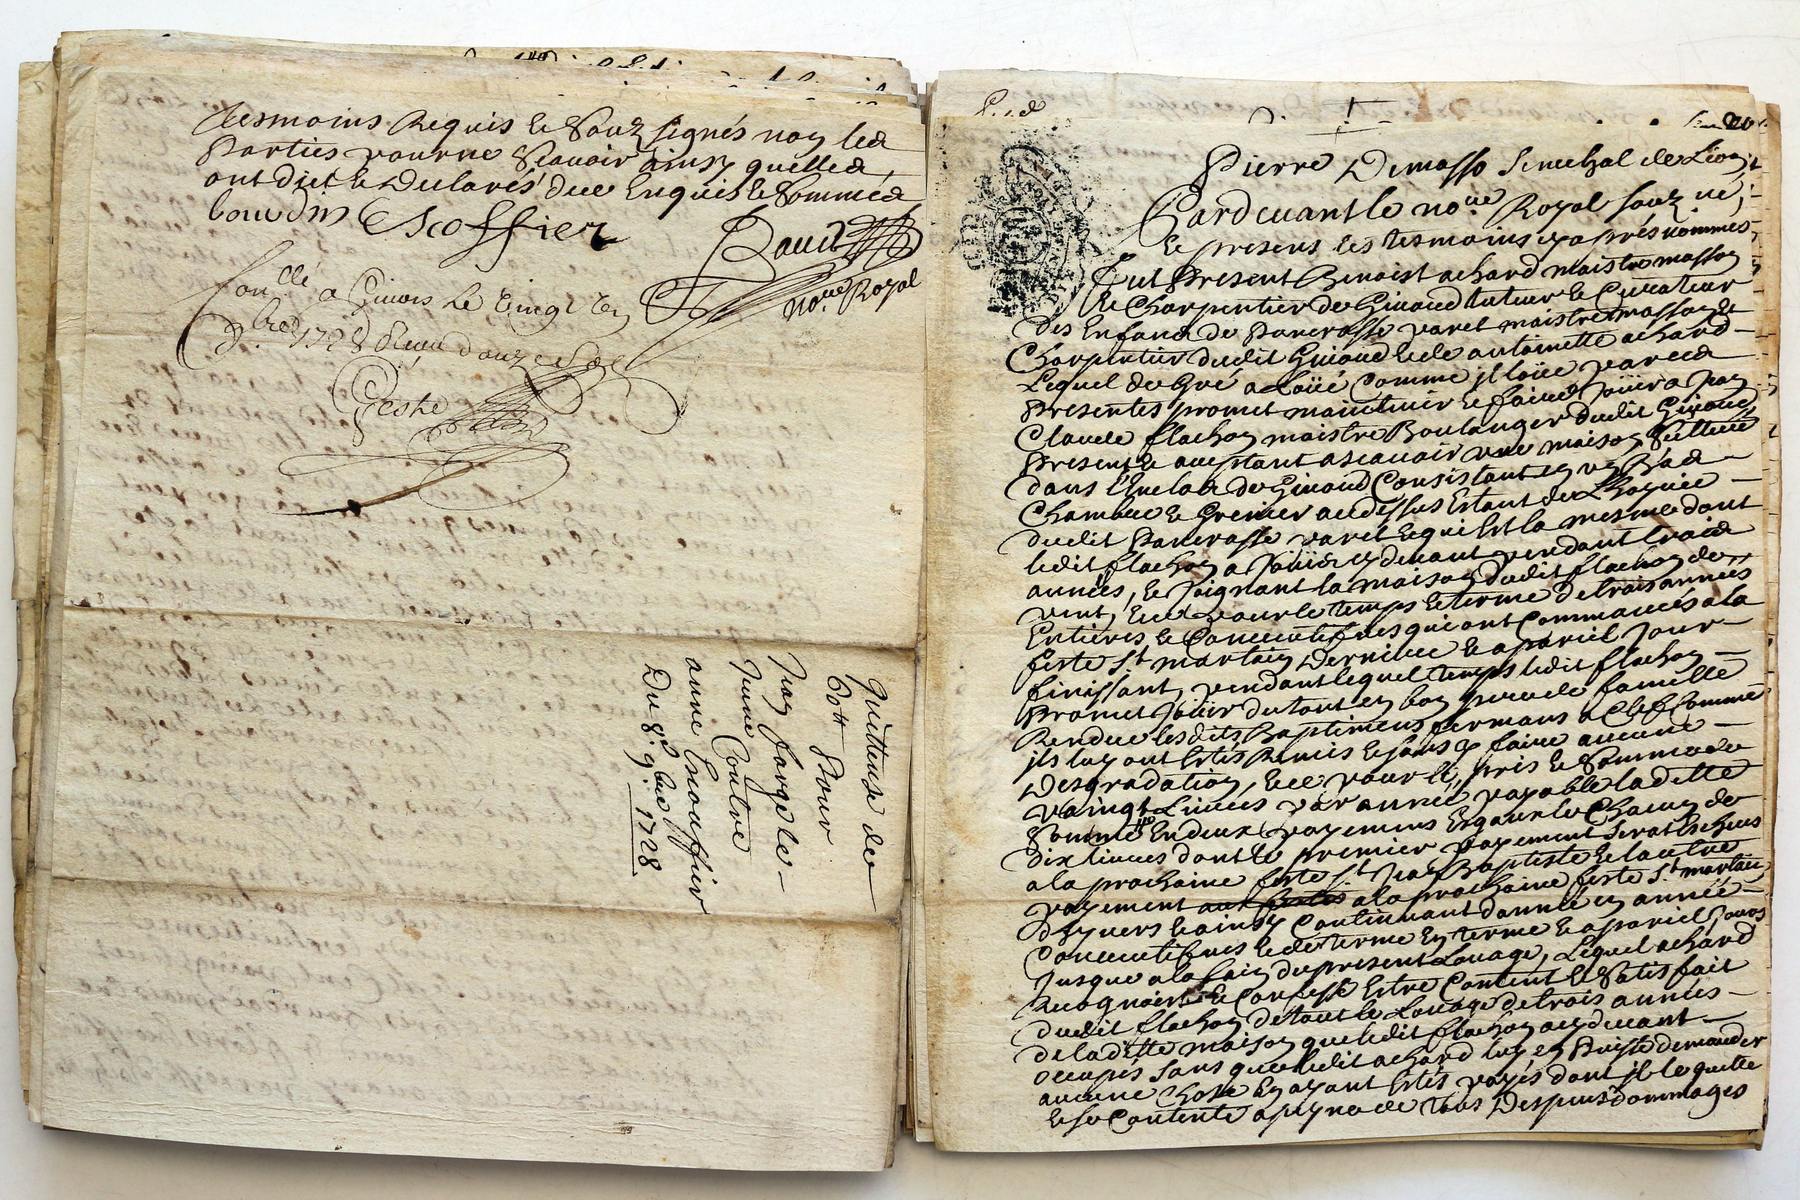 tesmoins Requis et Souz signés non les
Parties pour ne Scavoir ainsy quelles
ont dict et Declarés dee Enquis et Sommés
Escoffier
Not.re Royal
a Givors le vingt
1728
Geste
Quittance de
60tt Pour
Jean farge le
Jeune Contre
anne Escouffier
Du 8.e 9.bre 1728
Pierre Demasso Senechal de Lion
Pardevant le no.re Royal souz né,
et presens les tesmoins cy aprés nommés,
fut Present Benoist achard maistre masson
et Charpentier de Givord tuteur et Curateur
des Enfans de Pancrasse varet maistre masson et
Charpentier dudit Givord et de antoinette achard
Lequel de Gré a Loüé Comme jl loüe par ces
Presentes promet maintenir et faire Joüir a
Claude flachon maistre Boulanger dudit Givord
Present et acceptant ascavoir une maison Scittuée
dans l'Enclos de Givord Consistant en un Bas
Chambre et Grenier au dessus Estant de L'hoyrie
dudit Pancrasse varet et qui Est la mesme dont
ledit flachon a Joüir cy devant pendant trois
années, et Joignant la maison dudit flachon de
vent, et ce pour le temps et terme de trois années
Entieres et Consecutifves qui ont Commancés a la
feste S.t martin Derniere et a pareil Jour
finissant, pendant lequel temps ledit flachon
Promet Joüir du tout en bon pere de famille
Rendre lesdits Baptimens fermans a Clef Comme
jls luy ont Estés Remis et sans y faire aucune
Desgradation, et ce pour le pris et Somme de
vaingt Livres par année payable ladite
Somme En deux payemens Esgaux Chacun de
dix livres dont le premier payement Serat Escheus
a la prochaine feste S.t Jean Baptiste et lautre
payement aux festes a la prochaine feste S.t martin
d'hyvers et ainsy Continuant dannée en année
Consecutifves et de terme En terme et a pareil Jours
Jusque a la fin du present Loüage, Lequel achard
Recognoit et Confesse Estre Content et Satisfait
dudit flachon de tout le Loüage de trois années
de ladite maison que ledit flachon a cy devant
occupés Sans que ledit achard luy en Puisse demander
aucune Chose En ayant Estés payés dont jl le quitte
et se Contente a peyne de tous Despens dommages